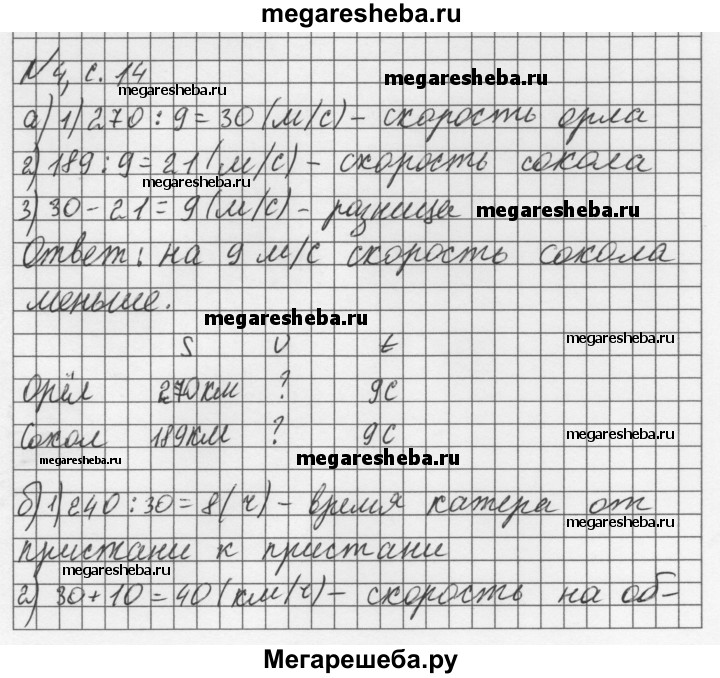 megaresheba.ru
№4, с. 14
megaresheba.ru
megaresheba.ru
а) 1) 270 : 9 = 30 (м/с) – скорость орла
2) 189 : 9 = 21 (м/с) – скорость сокола
megaresheba.ru
3) 30 – 21 = 9 (м/с) – разница megaresheba.ru
Ответ: на 9 м/с скорость сокола
меньше.
megaresheba.ru
megaresheba.ru
S V t
Орёл 270км ? 9с
Сокол 189км ? 9с megaresheba.ru
megaresheba.ru megaresheba.ru
б) 1) 240 : 30 = 8 (ч) – время катера от
megaresheba.ru
пристани к пристани
megaresheba.ru
2) 30 + 10 = 40 (км/ч) – скорость на об-
Мегарешеба.ру